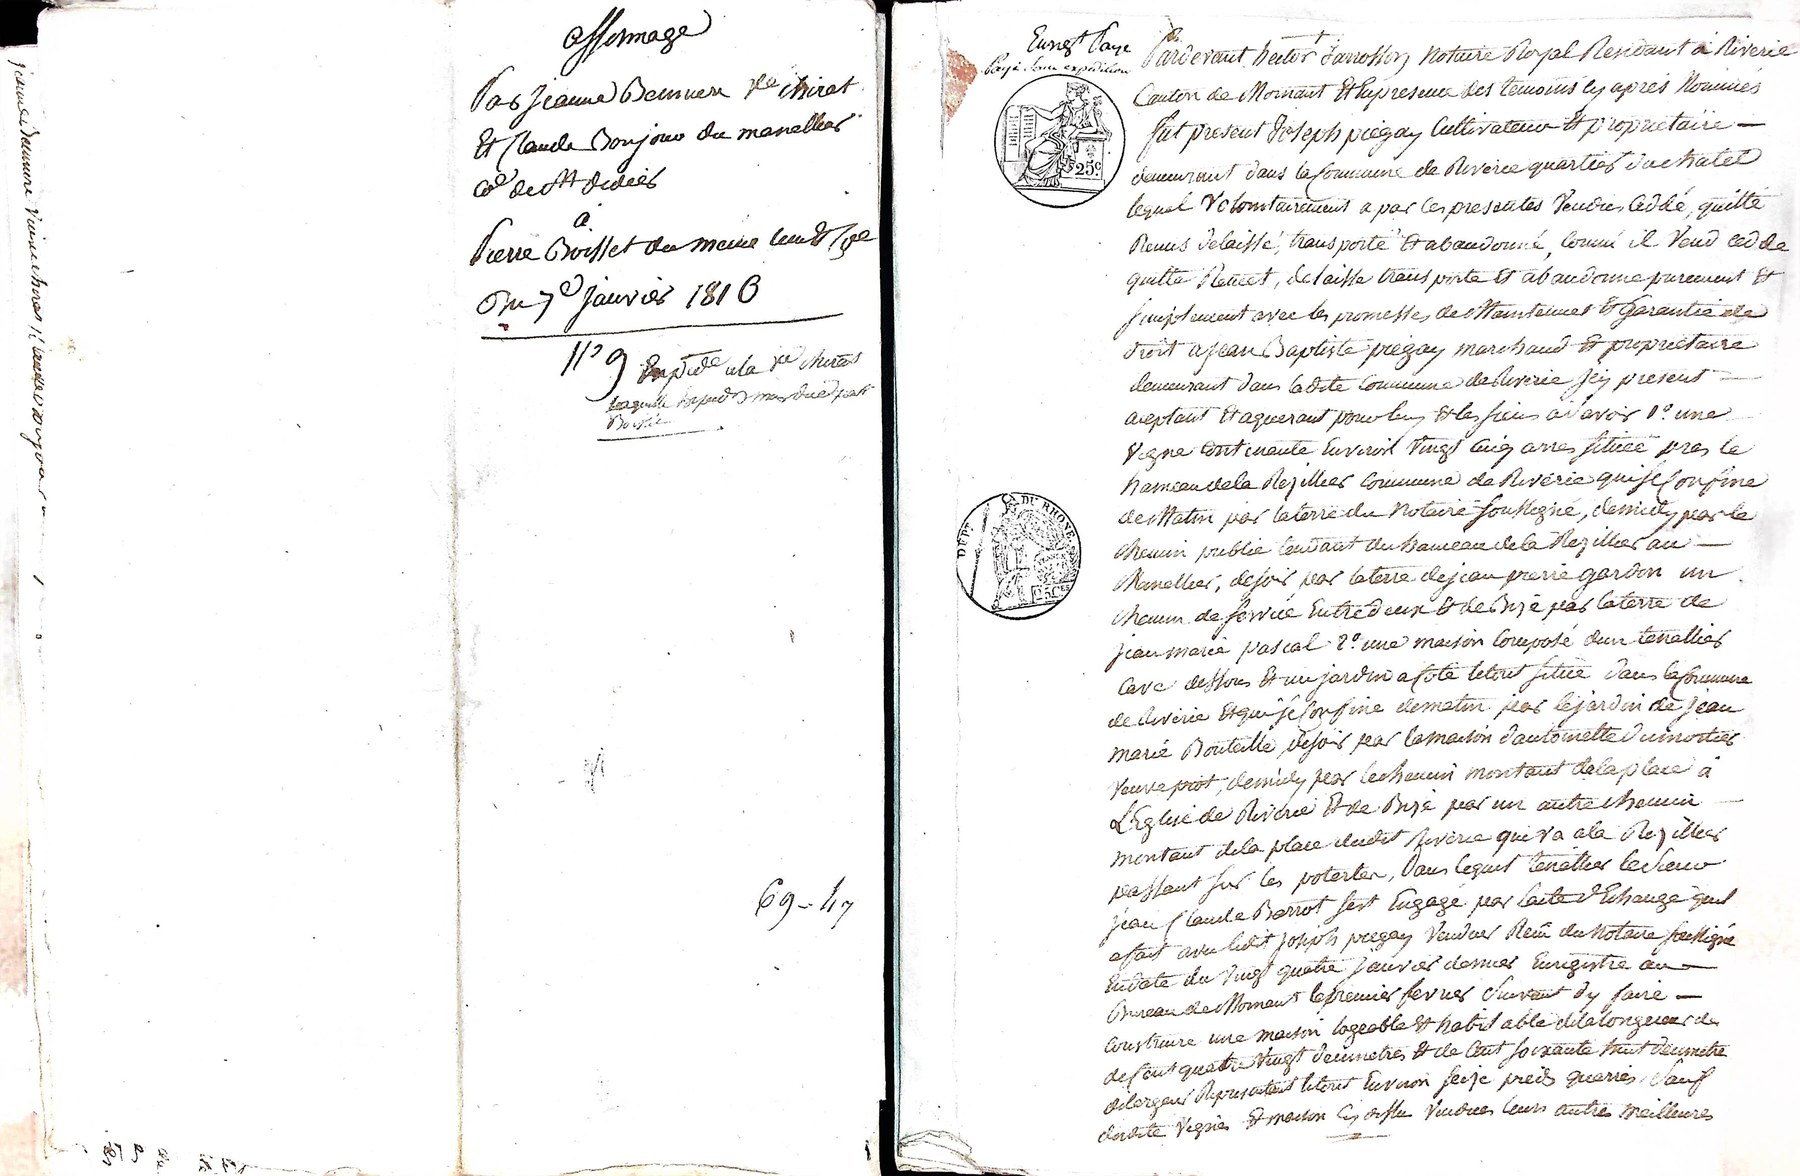 affermage
Par Jeanne veuve Chirat
Et Claude Bonjour du manellier
Coe de St didier
à
Pierre Boisset du meme lieu
Du 7e Janvier 1816
No 9 Expde a la ve chirat
laquelle
69 - 47
Enregt Payé
Payé expedition
25c
DEPT DU RHONE
25 Ces
Pardevant hector Notaire Royal Residant à Riverie
Canton de Mornant Et En presence des temoins cy aprés Nommés
fut present Joseph piegay Cultivateur Et proprietaire
demeurant dans la Commune de Riverie quartier du chatel
lequel Volontairement a par ces presentes Vendu Ceddé, quitté
Remis delaissé, transporté Et abandonné, comme il Vend cedde
quitte Remet, delaisse transporte Et abandonne purement Et
simplement avec les promesses de Maintenue Et Garantie de
droit a jean Baptiste piegay marchand Et proprietaire
demeurant dans ladite Commune de Riverie Icy present
aceptant Et aquerant pour luy Et les siens a savoir 1o une
Vigne Contenante Environ Vingt Cinq ares située pres le
hameau de la Rejillier commune de Riverie qui se confine
de Matin par la terre du Notaire soussigné, de midy par le
chemin public tendant du hameau de la Rejillier au
Manellier, de soir par la terre de jean pierre gardon un
chemin de service Entre deux Et de Bize par la terre de
jean marie pascal 2o une maison Composé d'un tenallier
Cave dessous Et un jardin a coté le tout situé dans la Commune
de Riverie Et qui se confine de matin par le jardin de jean
marie Bouteille, de soir par la maison d'antoinette Dumortier
Veuve piot, de midy par le chemin montant de la place à
L'Eglise de Riverie Et de Bize par un autre chemin
montant de la place dudit Riverie qui va a la Rejillier
passant sur les, Dans lequel tenallier le sieur
jean Claude Barrot s'est Engagé par l'acte d'Echange quil
a fait avec ledit joseph piegay Vendeur Reçu du Notaire soussigné
En date du Vingt quatre janvier dernier Enregistré au
Bureau de Mornant le premier fevrier Suivant d'y faire
construire une maison logeable Et habitable de la longueur de
de Cent quatre Vingt decimetres Et de Cent soixante huit decimetre
de largeur Representant le tout Environ seize pieds querrés, Sauf
desdite Vignes Et maison Cy dessu Vendues leurs autres meilleures